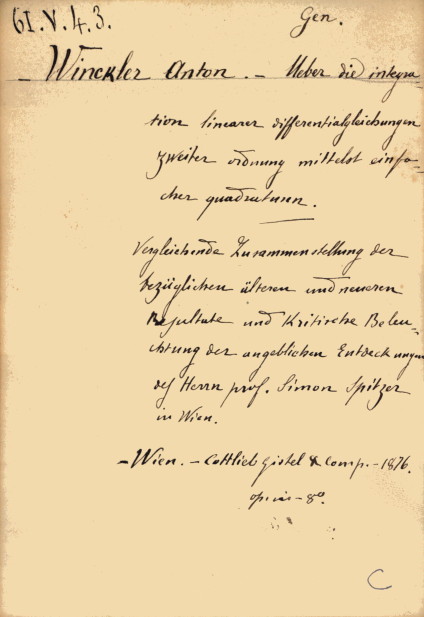 61.V.4.3.
Gen.
Winckler Anton. – Ueber die integra-
tion linearer differentialgleichungen
zweiter ordnung mittelst einfa-
cher quadraturen.
Vergleichende Zusammenstellung der
bezüglichen älteren und neueren
Resultate und Kritische Beleu-
chtung der angeblichen Entdeckungen
des Herrn prof. Simon Spitzer
in Wien.
– Wien. – Gottlieb Gistel & Comp. – 1876.
op. in – 8º.
C